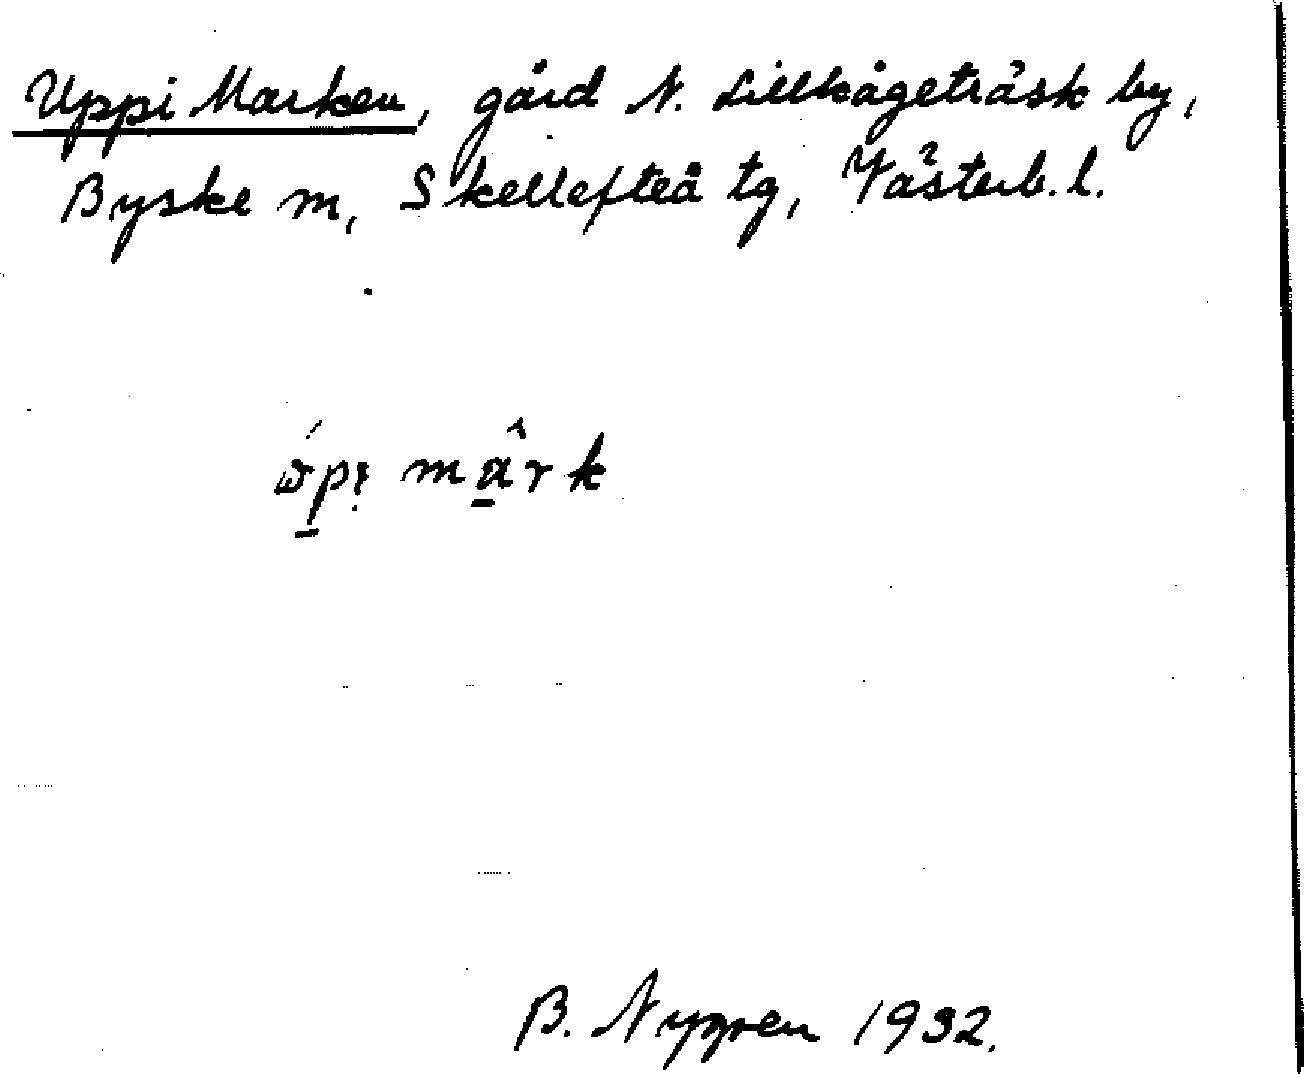 Uppi Marken, gård N. Lillkågeträsk by,
Byske m, Skellefteå tg, Västerb. l.
mârk
B. Nygren 1932.